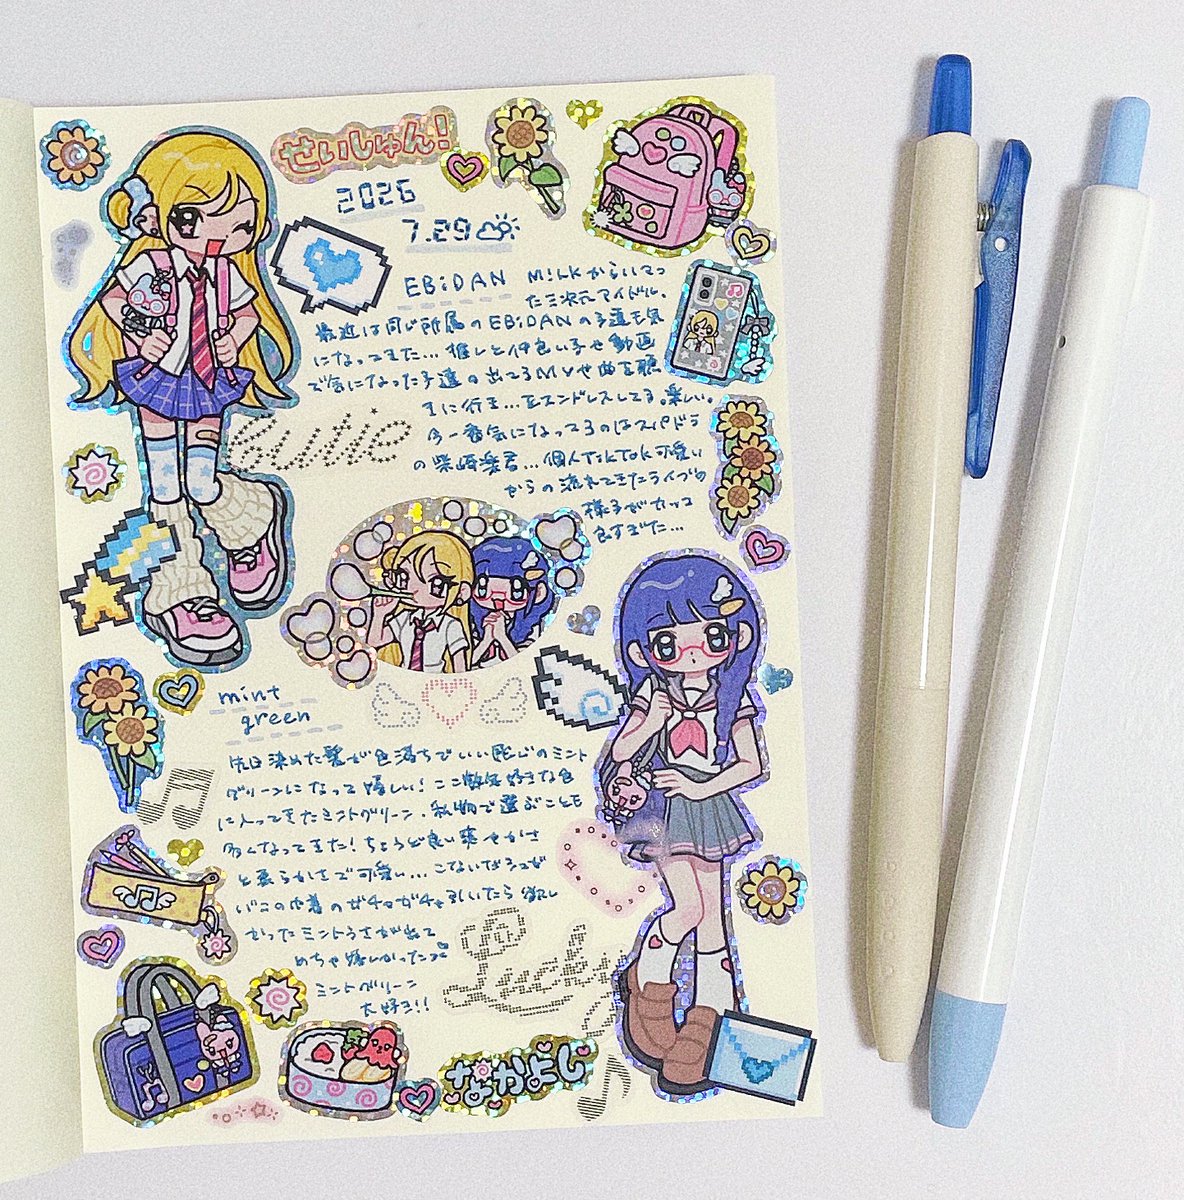 せいしゅん!
2026
7.29
EBiDAN
M!LKからハマっ
た三次元アイドル.
最近は同じ所属のEBiDANの子達も気
になってきた… 推しと仲良い子や動画
で気になった子達の出てるMVや曲を聴
きに行き…をエンドレスしてる。楽しい。
今一番気になってるのはスパドラ
の柴崎楽君… 個人TikTok可愛い
からの流れてきたライブの
様子がカッコ
良すぎた…
Cutie
mint
green
先日染めた髪が色落ちでいい感じのミント
グリーンになって嬉しい! ここ数年好きな色
に入ってきたミントグリーン. 私物で選ぶことも
多くなってきた! ちょうど良い爽やかさ
と柔らかさで可愛い… こないだシュガ
いこの巾着のガチャガチャ引いたら欲し
かったミントうさが出て
めちゃ嬉しかった
ミントグリーン
大好き!!
Lucky
なかよし